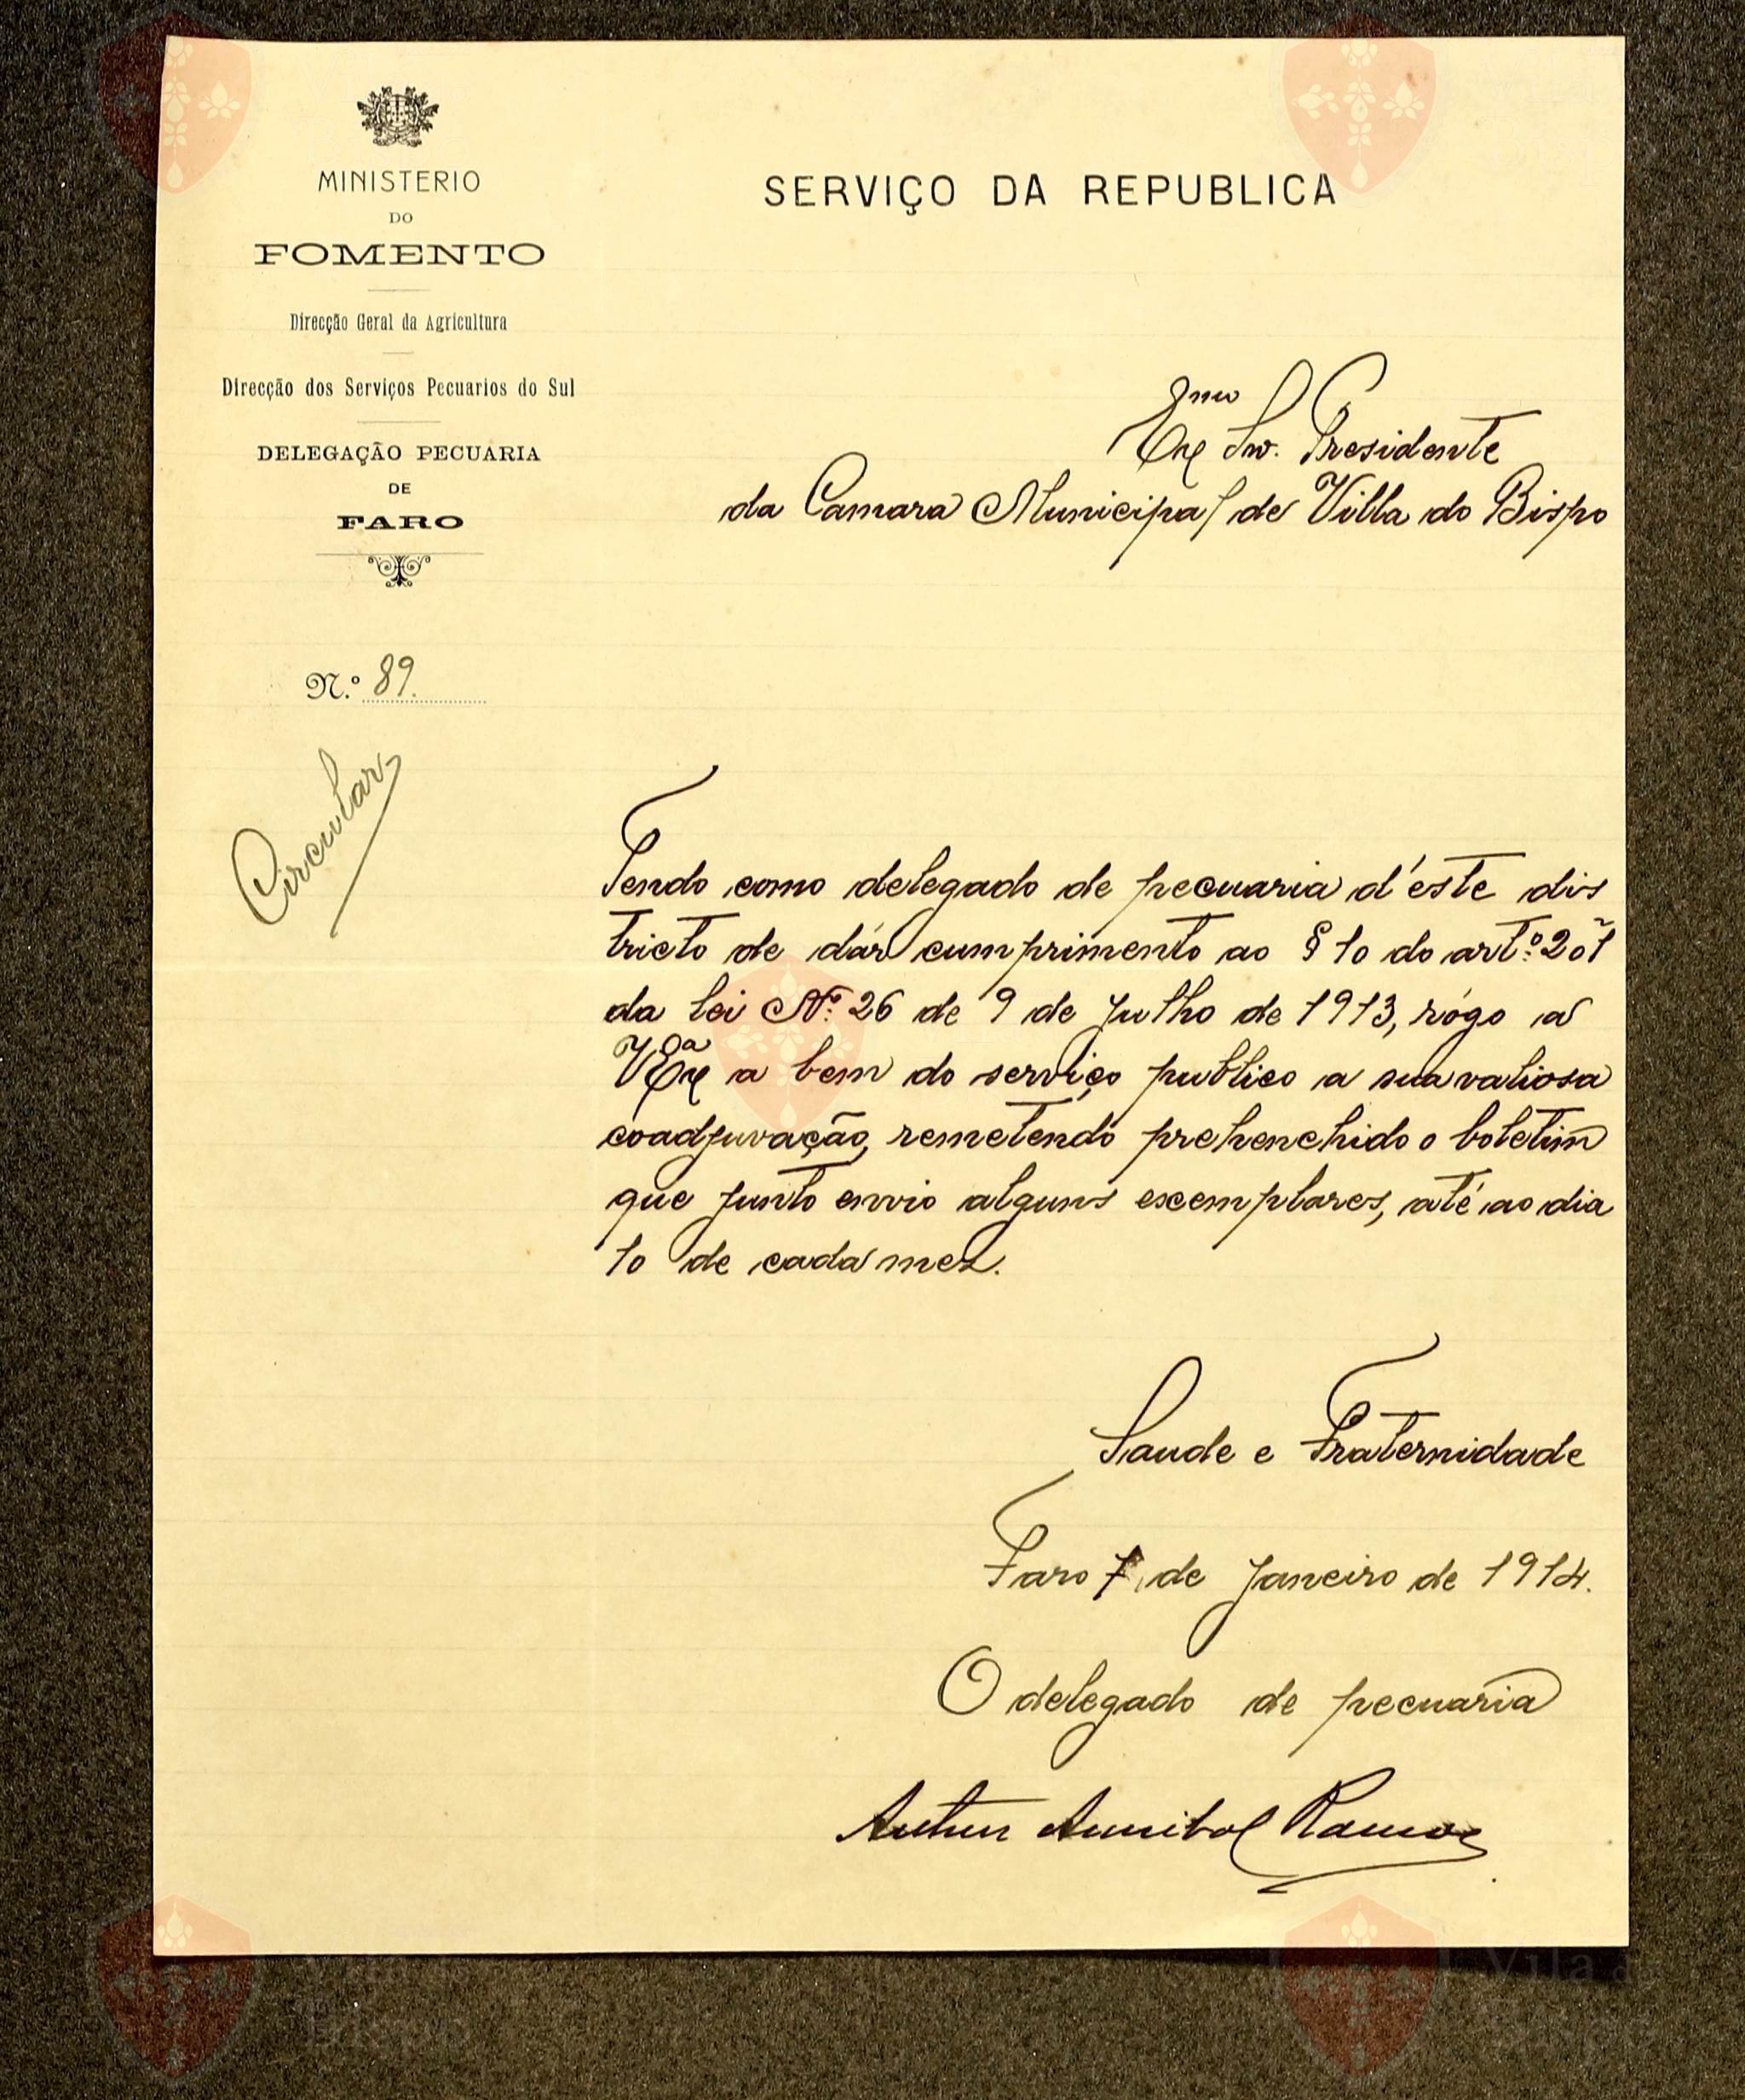 MINISTERIO
DO
FOMENTO
Direcção Geral da Agricultura
Direcção dos Serviços Pecuarios do Sul
DELEGAÇÃO PECUARIA
DE
FARO
N.º 89.
Circular
SERVIÇO DA REPUBLICA
Exmo Snr. Presidente
da Camara Municipal de Villa do Bispo
Tendo como delegado de pecuaria d'éste dis
tricto de dár cumprimento ao § 1o do artº
da lei Nº 26 de 9 de Julho de 1913, rógo a
VExª a bem do serviço publico a sua valiosa
coadjuvação, remetendo prehenchido o boletim
que junto envio alguns excemplares, até ao dia
10 de cada mez.
Saude e Fraternidade
Faro 7 de Janeiro de 1914.
O delegado de pecuaria
Arthur Annibal Ramos
Vila do
Bispo